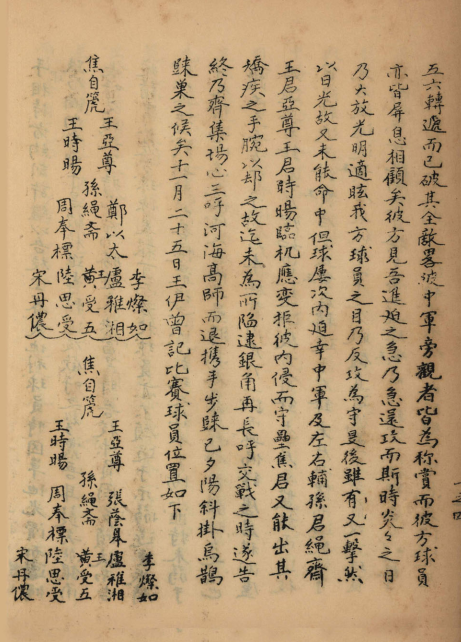 五六轉遞而已破其全敵畧彼中軍旁觀者皆為称賞而彼方球員
亦皆屏息相顧矣彼方見吾進迫之急乃急還攻而斯時炎々之日
乃大放光明適眩我方球員之目乃反攻為守是後雖有又一擊然
以日光故又未能命中但球屢次內迫幸中軍及左右輔孫君繩齊
王君亞尊王君時暘臨机應变拒彼內侵而守壘焦君又能出其
矯疾之手腕以却之故迄未為所陷逮銀角再長呼交戰之時遂告
終乃齊集場心三呼河海高師而退携手步歸已夕陽斜掛烏鵲
歸巢之候矣十一月二十五日王伊曾記比賽球員位置如下
焦自箎
王亞尊
王時暘
鄭以太
孫繩斋
周奉標
李燦如
盧雅湘
王
黃受五
陸思受
宋丹儂
焦自箎
王亞尊
王時暘
張蔭
孫繩斋
周奉標
李燦如
盧雅湘
王
黃受五
陸思受
宋丹儂